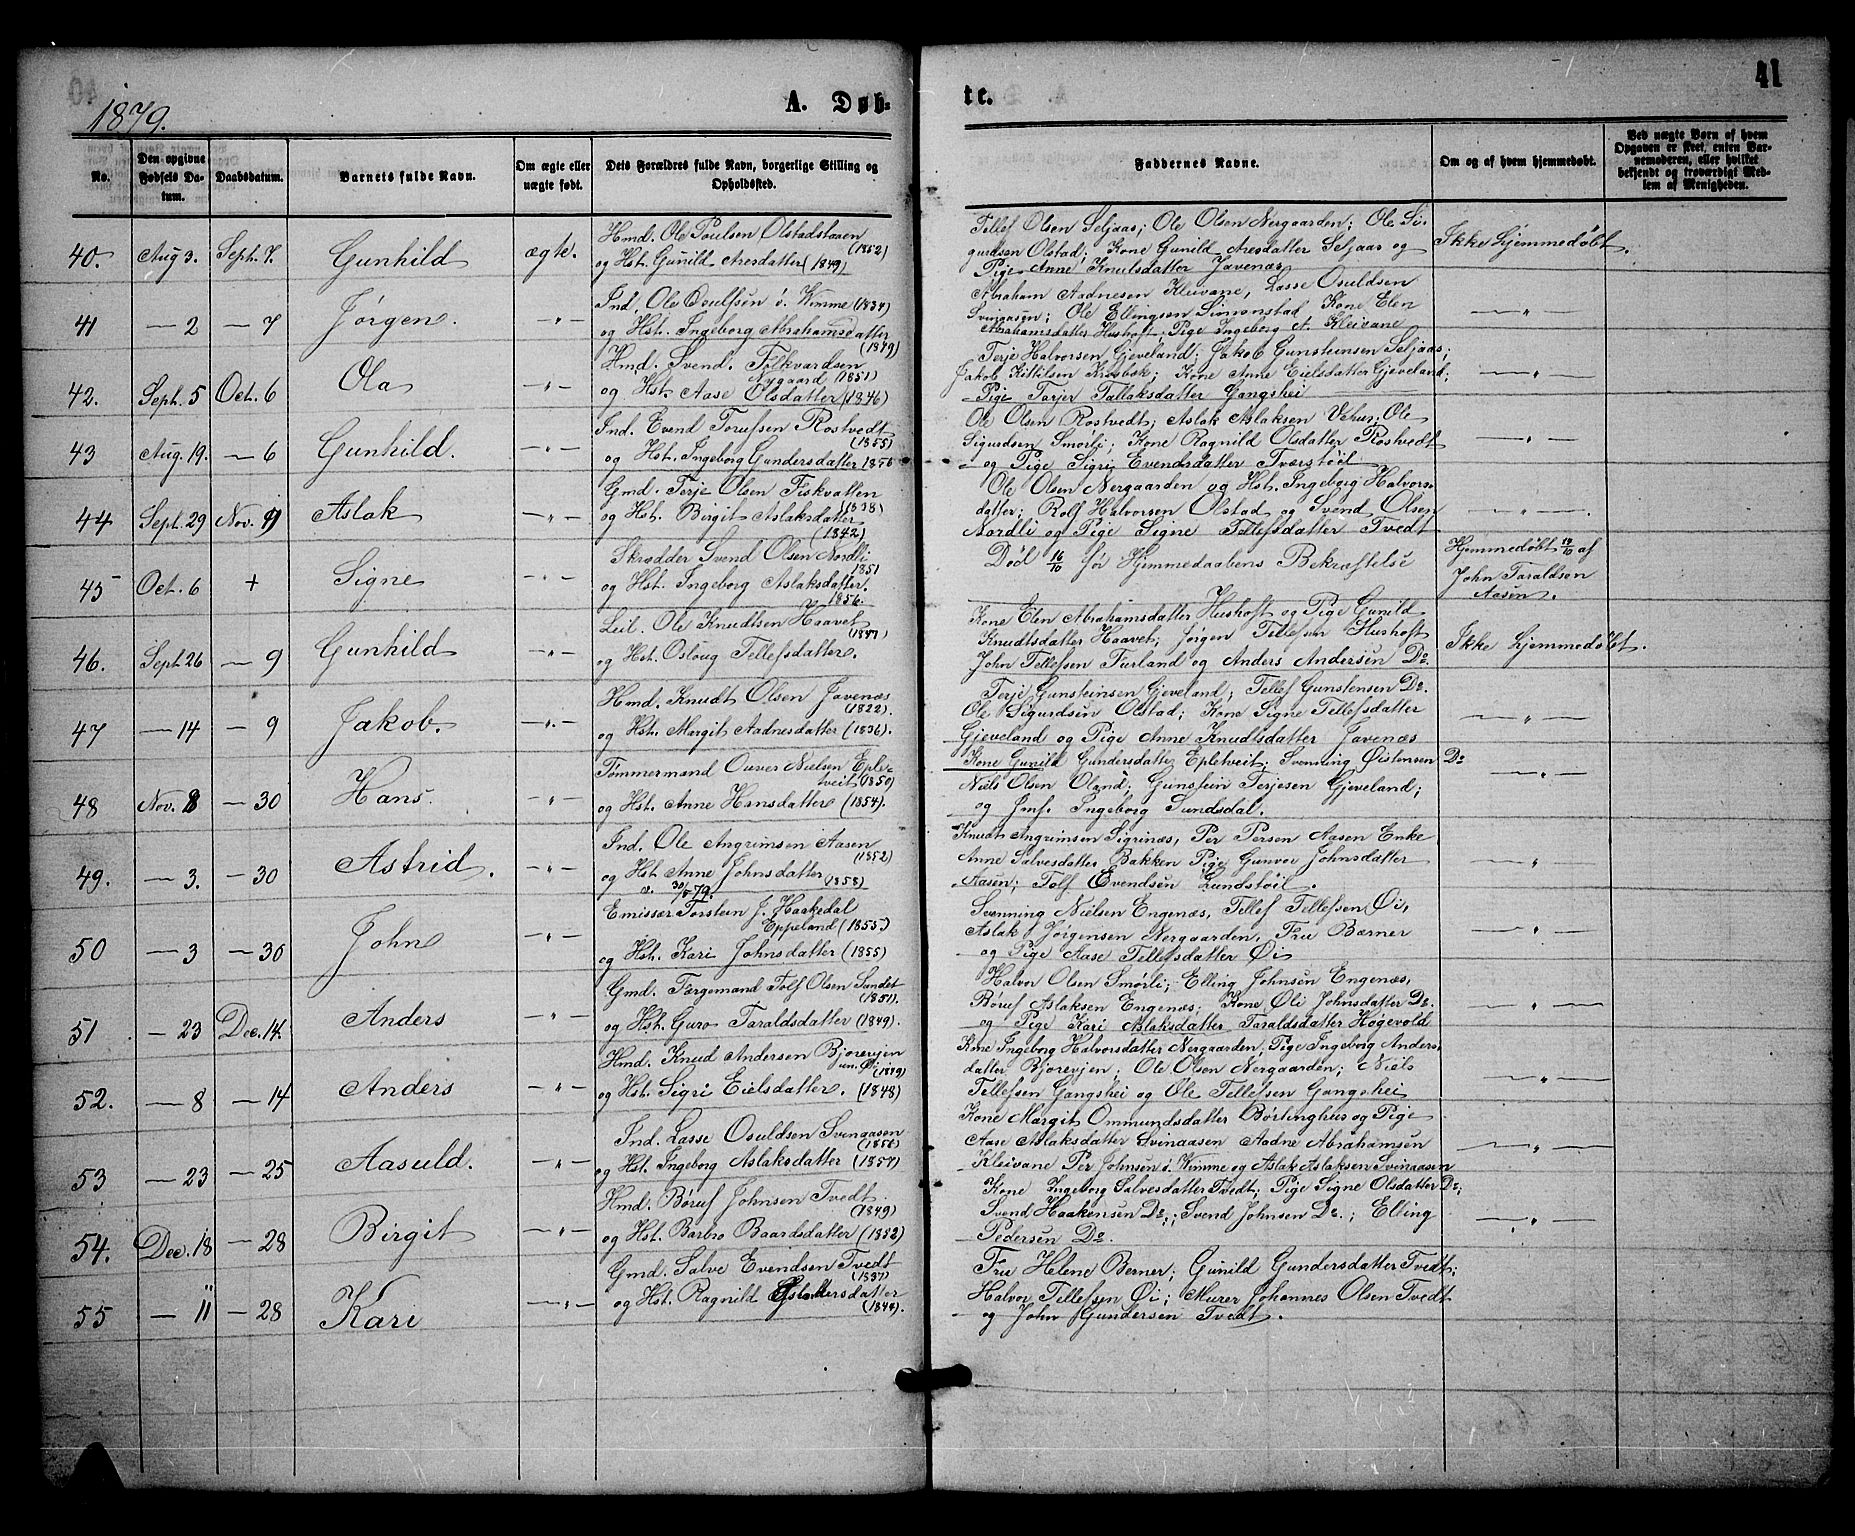 1879.
A. Døb=
te.
41
No.
Den opgivne Fødsels Da-
tum.
Daabsdatum.
Barnets fulde Navn.
Om ægte eller
uægte født.
Dets Forældres fulde Navn, borgerlige Stilling og
Opholdssted.
Faddernes Navne.
Om og af hvem hjemmedøbt.
Ved uægte Børn af hvem
Opgaven er skeet, enten Bar-
nemoderen, eller hvilket
bekjendt og troværdigt Med-
lem af Menigheden.
40. Aug 3. Sept. 7. Gunhild ægte.
Hmd. Ole Poulsen Olstadstaaen
(1852)
og Hst. Gunild Aresdatter (1849)
Tellef Olsen Seljaas; Ole Olsen Nergaarden; Ole Si-
gurdsen Olstad; Kone Gunild Aresdatter Seljaas og
Pige Anne Knutsdatter Javenæs
Ikke hjemmedøbt.
41 — 2 — 7 Jørgen. — " —
Ind. Ole Osulfsen i. Kimme (1834)
og Hst. Ingeborg Abrahamsdatter
(1849)
Abraham Aadnesen Kleivane, Lasse Osuldsen
Svinaasen; Ole Ellingsen Simonstad Kone Elen
Abrahamsdatter Hushoft; Pige Ingeborg A. Kleivane
— " —
42. Sept. 5 Oct. 6 Ola — " —
Hmd. Svend. Folkvardsen
Nygaard (1851)
og Hst. Aase Olsdatter (1846)
Terje Halvorsen Gjeveland; Jakob Gunsteinsen Seljaas;
Jakob Kittilsen Krosbøk; Kone Anne Eielsdatter Gjeveland;
Pige Torjer Tallaksdatter Gangshei
— " —
43 Aug. 19. — 6 Gunhild. — " —
Ind. Evend Torufsen Rostvedt
(1855)
og Hst. Ingeborg Gundersdatter 1856
Ole Olsen Rostvedt; Aslak Aslaksen Vehus; Ole
Sigurdsen Smörli; Kone Ragnild Olsdatter Rostvedt
og Pige Sigri Evendsdatter Tværstöil
— " —
44 Sept. 29 Nov. 9 Aslak — " —
Gmd. Terje Olsen Fiskvatten
(1838)
og Hst. Birgit Aslaksdatter
(1842)
Ole Olsen Nergaarden og Hst. Ingeborg Halvors-
datter; Rolf Halvorsen Olstad og Svend Olsen
Nordli og Pige Signe Tellefsdatter Tvedt
— " —
45 Oct. 6 + Signe — " —
Skrædder Svend Olsen Nordli
1851
og Hst. Ingeborg Aslaksdatter.
1856.
Död 16/10 før Hjemmedaabens Bekræftelse
Hjemmedøbt 14/10 af
John Taraldsen
Aasen.
46. Sept 26 — 9 Gunhild — " —
Leil. Ole Knudtsen Haavet
(1847)
og Hst. Osloug Tellefsdatter.
Kone Elen Abrahamsdatter Hushoft og Pige Gunild
Knudtsdatter Haavet; Jørgen Tellefsen Hushoft
John Tellefsen Furland og Anders Andersen Do.
Ikke hjemmedøbt.
47 — 14 — 9 Jakob. — " —
Hmd. Knudt Olsen Javenæs
(1822).
og Hst. Margit Aadnesdatter (1836).
Terje Gunsteinsen Gjeveland; Tellef Gunstensen Do.
Ole Sigurdsen Olstad; Kone Signe Tellefsdatter
Gjeveland og Pige Anne Knudtsdatter Javenæs
— " —
48 Nov. 8 — 30 Hans. — " —
Tømmermand Ouver Nielsen Eple-
tveit (1850)
og Hst. Anne Hansdatter (1854).
Kone Gunild Gundersdatter Epletveit; Svenning Øistensen Do
Niels Olsen Oland; Gunstein Terjesen Gjeveland;
og Jmf. Ingeborg Sundsdal.
— " —
49. — 3. — 30 Astrid. — " —
Ind. Ole Angrimsen Aasen
(1852)
og Hst Anne Johnsdatter (1858)
30/8 79.
Knudt Angrimsen Sigrinæs, Per Persen Aasen Enke
Anne Salvesdatter Bakken Pige Gunvor Johnsdatter
Aasen; Tolf Evendsen Lundstöil.
"
50 — 3 — 30 John — " —
Emissær Torstein J. Haakedal
Eppeland (1855)
og Hst. Kari Johnsdatter (1855)
Svenning Nielsen Engenæs, Tellef Tellefsen Øi,
Aslak Jørgensen Nergaarden, Fru Bærner
og Pige Aase Tellefsdatter Øi
— " —
51 — 23 Dec. 14. Anders — " —
Gmd. Færgemand Tolf Olsen Sandet
(1851).
og Hst. Guro Taraldsdatter (1849).
Halvor Olsen Smörli; Elling Johnsen Engenæs,
Børuf Aslaksen Engenæs; Kone Øli Johnsdatter Do.
og Pige Kari Aslaksdatter Taraldsdatter Høgevold
— " —
52. — 8 — 14 Anders — " —
Hmd. Knud Andersen Bjorevjen
un. Øi (1849)
og Hst. Sigri Eielsdatter. (1848)
Kone Ingeborg Halvorsdatter Nergaarden; Pige Ingeborg Anders-
datter Bjorevjen; Ole Olsen Nergaarden; Niels
Tellefsen Gangshei og Ole Tellefsen Gangshei
— " —
53 — 23 — 25 Aasuld. — " —
Ind. Lasse Osuldsen Svinaasen
og Hst. Ingeborg Aslaksdatter (1857)
Kone Margit Ommundsdatter Børtinghus og Pige
Aase Aslaksdatter Svinaasen Aadne Abrahamsen
Kleivane Per Johnsen i. Kimme og Aslak Aslaksen Svinaasen
— " —
54. Dec. 18 — 28 Birgit — " —
Hmd. Børuf Johnsen Tvedt.
(1849)
og Hst. Barbro Baardsdatter (1852)
Kone Ingeborg Salvesdatter Tvedt; Pige Signe Olsdatter Do;
Svend Haakensen Do.; Svend Johnsen Do.; Elling
Pedersen Do.
— " —
55 — 11 — 28 Kari — " —
Gmd. Salve Evendsen Tvedt
(1837)
og Hst. Ragnild
(1844).
Fru Helene Berner; Gunild Gundersdatter Tvedt;
Halvor Tellefsen Øi; Murer Johannes Olsen Tvedt
og John Gundersen Tvedt.